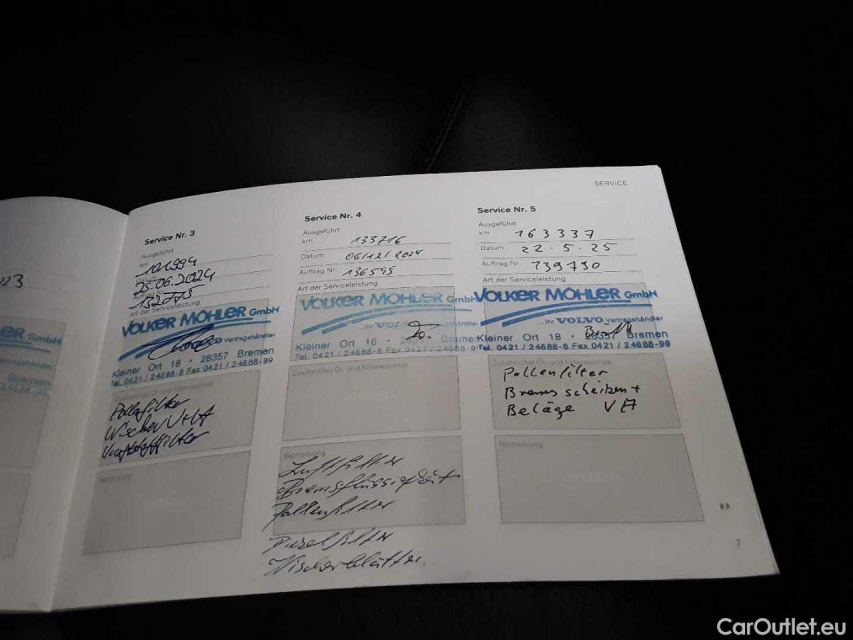 SERVICE
23
GmbH
Bremen
Service Nr. 3
Ausgeführt
km 101994
25.06.2024
132073
Art der Serviceleistung
VOLKER MÖHLER GmbH
Vertragshändler
Kleiner Ort 18 · 28357 Bremen
Tel. 0421 / 24688-8. Fax 0421 / 24688-99
Pollenfilter
Wischer V+H
Kraftstofffilter
Service Nr. 4
Ausgeführt
km 133716
Datum 06/12/2024
Auftrag Nr. 136595
Art der Serviceleistung
VOLKER MÖHLER GmbH
Ihr VOLVO
Kleiner Ort 18 · Bremen
Tel. 0421 / 24688-8. Fax 0421 / 24688-99
Zusätzlicher Öl- und Filterwechsel
Bemerkung
Luftfilter
Bremsflüssigkeit
Pollenfilter
Dieselfilter
Wischerblätter.
Service Nr. 5
Ausgeführt
km 163337
Datum 22.5.25
Auftrag Nr. 139730
Art der Serviceleistung
VOLKER MÖHLER GmbH
Ihr VOLVO Vertragshändler
Kleiner Ort 18 · 28357 Bremen
Tel. 0421 / 24688-8. Fax 0421 / 24688-99
Zusätzlicher Öl- und Filterwechsel
Pollenfilter
Bremsscheiben +
Beläge VA
Bemerkung
7
CarOutlet.eu